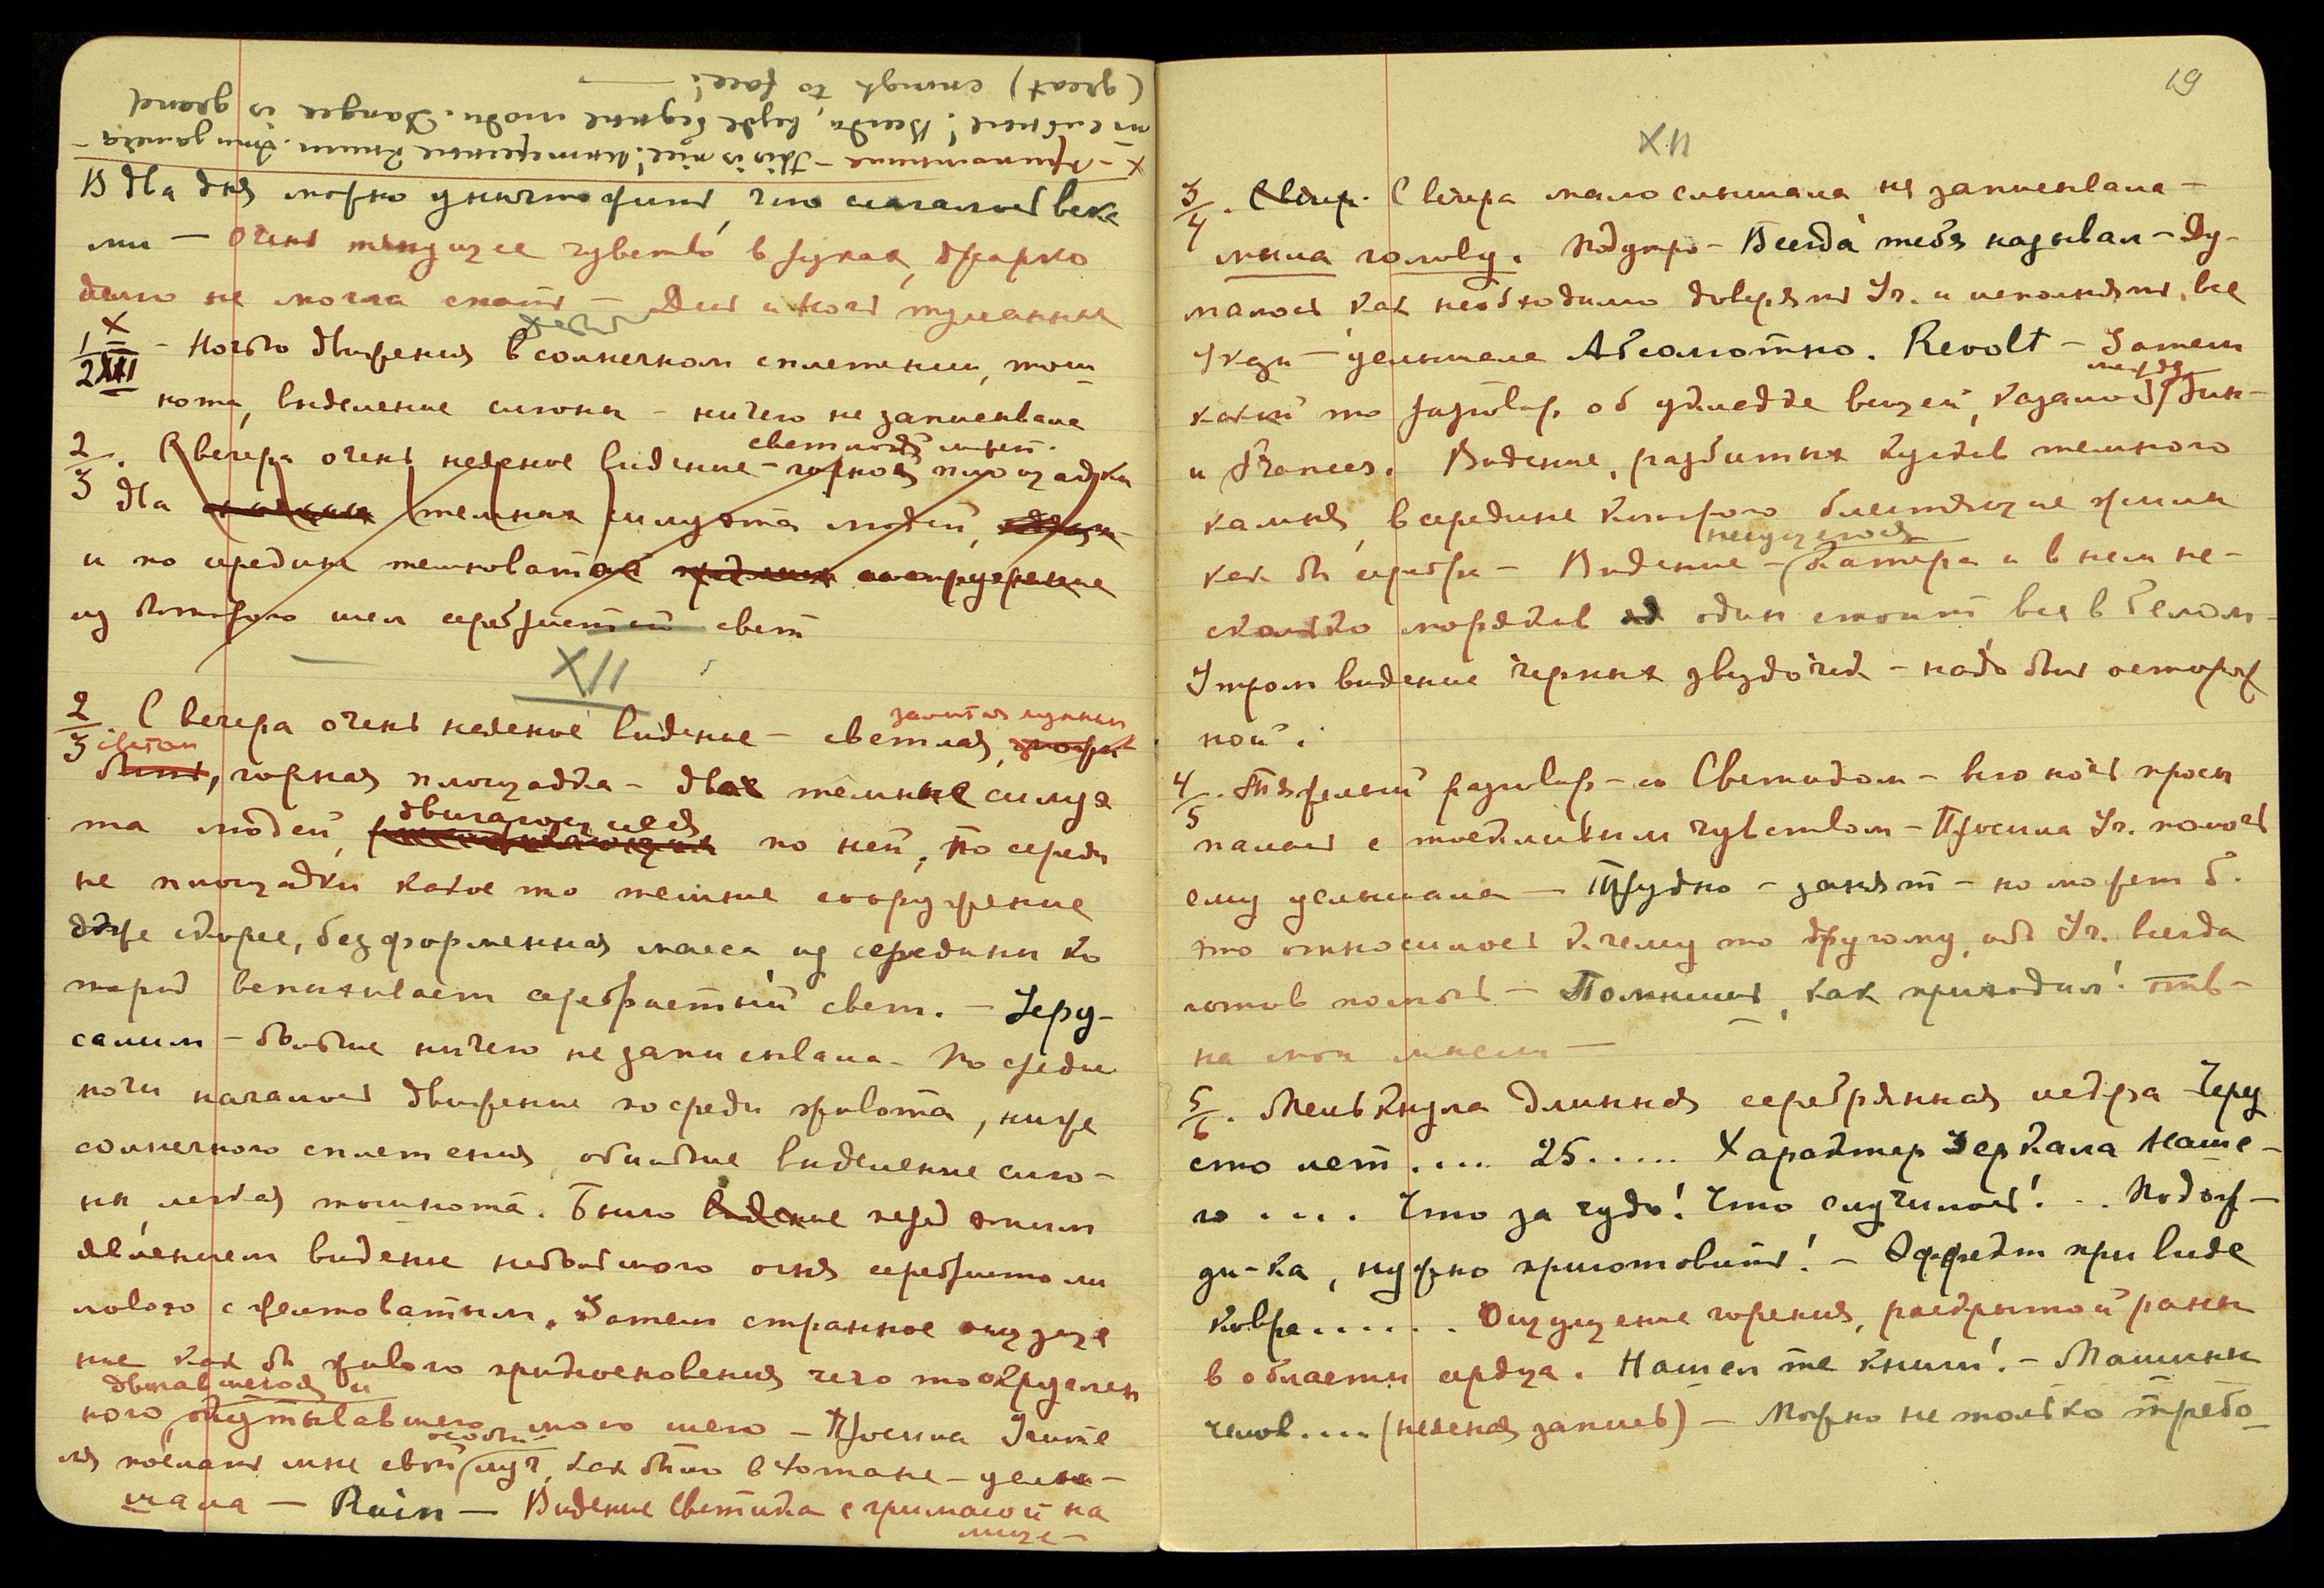 х – Припоминание – This is nice! Интересные книги. Эти замеча-
тельные! Всегда, везде бедные люди. Danger is grand
(great) enough to face!
В два дня можно уничтожить, что слагалось века
ми – Очень тянущее чувство в руках, жарко
долго не могла спать – Дни и ночи туманные
х
1/2 XII – Ночью движения в солнечном сплетении, тош
нота, выделение слюны – ничего не записывала
светлой
2/3. С вечера очень неясное видение – горной площадки
два темных силуэта людей,
и по средине темноватое сооружение
из которого шел серебристый свет
XII
2/3. С вечера очень неясное видение – светлая, залитая лунным
светом, горная площадка – два темные силуэ
та людей, двигающиеся по ней, По среди
не площадки какое то темное сооружение
даже скорее, безформенная масса из середины ко
торой вспыхивает серебристый свет. – Иеру-
салим – больше ничего не записывала – По среди
ночи началось движение посреди живота, ниже
солнечного сплетения, обильное выделение слю-
ны легкая тошнота. Было видение перед этим
явлением видение небольшого огня серебристо ли
лового с желтоватым. Затем странное ощуще
ние как бы живого прикосновения чего то округлен
ного, двигавшегося и опутывавшего мою шею – Просила Учите
ля послать мне свой луч, как было в Хотане – услы-
шала – Ruin – Видение Светика с гримасой на
лице –
19
XII
3/4. Свечер. С вечера мало слышала не записывала –
мыла голову. Подутро – Всегда тебя называл – Ду-
малось как необходимо доверять Уч. и исполнять все
Указы – услышала Абсолютно. Revolt – Затем
какой то разговор об укладке вещей, казалось между Зин–
и Frances. Видение, разбитых кусков темного
камня, в середине которого блестящие жилы
как бы серебра – Видение – несущегося катера и в нем не-
сколько моряков один стоит весь в белом –
Утром видение черных звездочек – надо быть осторож
ной.
4/5. Тяжелый разговор – со Светиком – всю ночь просы
палась с тоскливым чувством – Просила Уч. помочь
ему услышала – Трудно – занят – но может б.
это относилось к чему то другому, ибо Уч. всегда
готов помочь – Помнишь, как приходил! отв-
на мои мысли –
5/6. Мелькнула длинная серебрянная искра – Чере
сто лет .... 25..... Характер Зеркала Наше-
го .... Что за чудо! Что случилось! .. Подож-
ди-ка, нужно приготовить! – Эффект при виде
ковра...... Ощущение горения, раскрытой раны
в области сердца. Нашел те книги! – Машины
челов.... (неясная запись) – Можно не только требо–